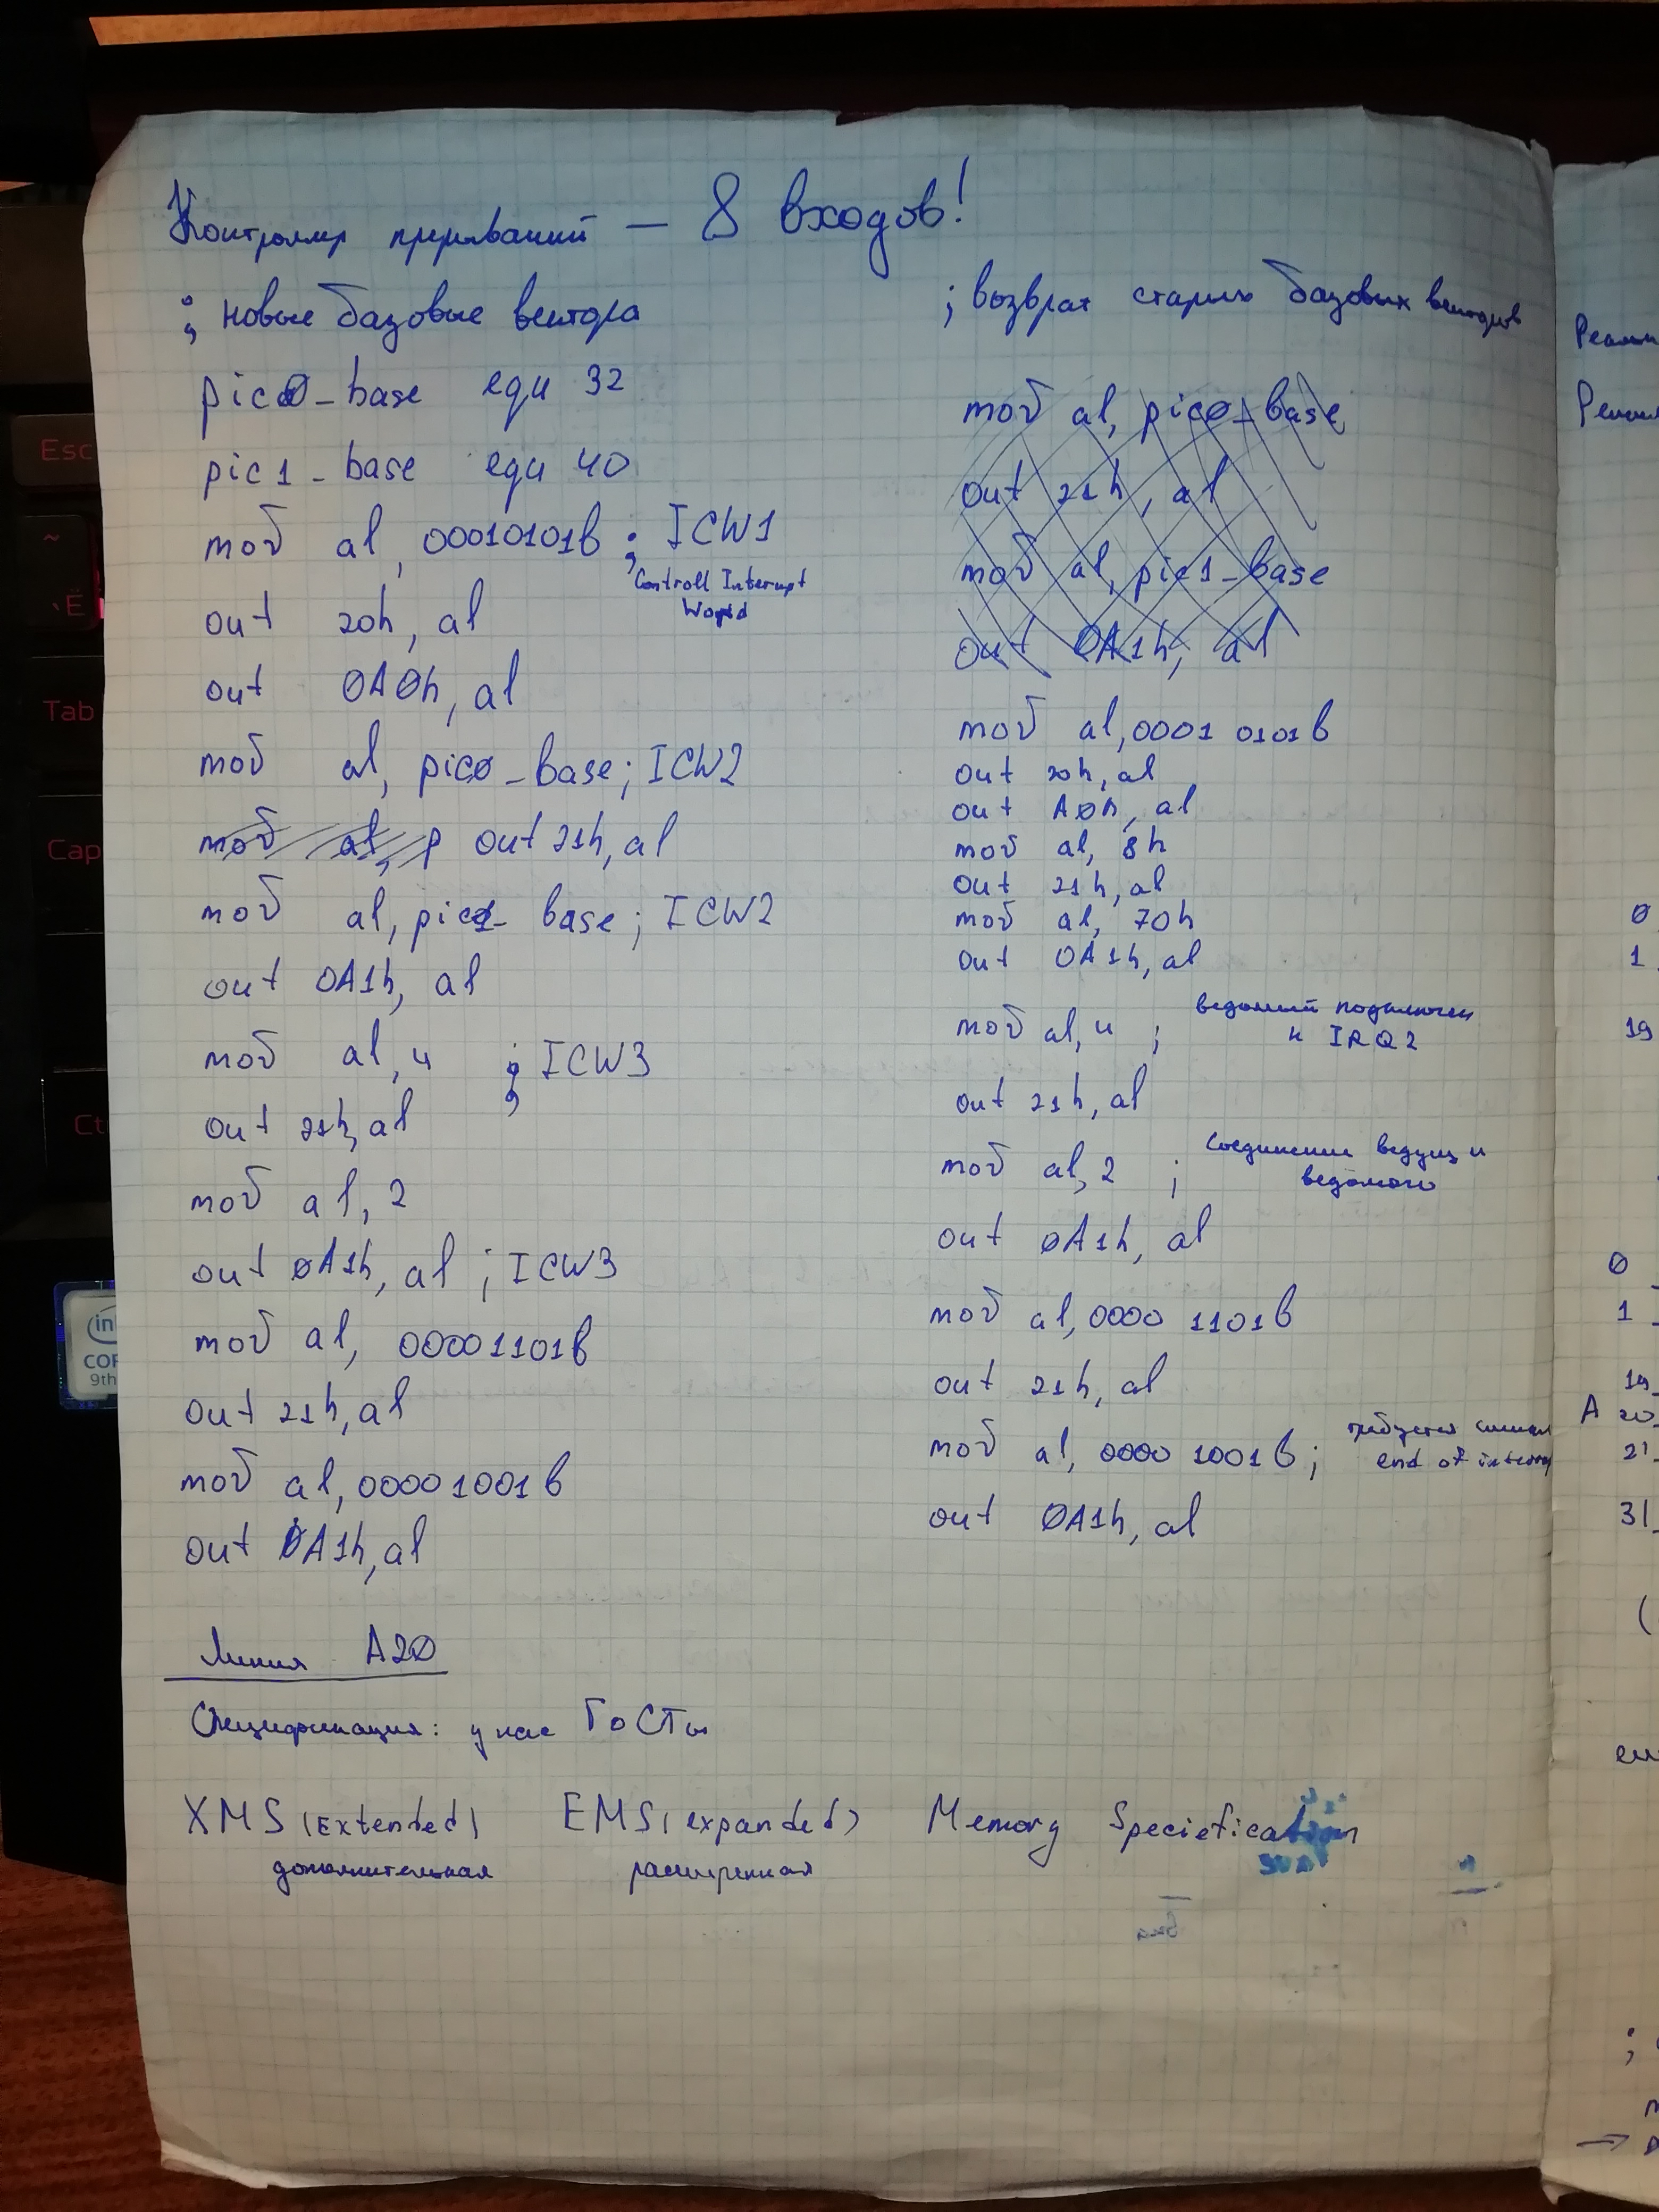 Контроллер прерываний — 8 входов!
; новые базовые вектора
pic0_base equ 32
pic1_base equ 40
mov al, 00010101b ; ICW1
Controll Interupt
Word
out 20h, al
out 0A0h, al
mov al, pic0_base; ICW2
mov al, p out 21h, al
mov al, pic1_base; ICW2
out 0A1h, al
mov al, 4 ; ICW3
out 21h, al
mov al, 2
out 0A1h, al ; ICW3
mov al, 00001101b
out 21h, al
mov al, 00001001b
out 0A1h, al
; возврат старых базовых векторов
mov al, pic0_base
out 21h, al
mov al, pic1_base
out 0A1h, al
mov al, 0001 0101b
out 20h, al
out A0h, al
mov al, 8h
out 21h, al
mov al, 70h
out 0A1h, al
mov al, 4 ; ведомый подключен
к IRQ2
out 21h, al
mov al, 2 ; Соединение ведущ и
ведомого
out 0A1h, al
mov al, 0000 1101b
out 21h, al
mov al, 0000 1001b ; требуется сигнал
end of interrup
out 0A1h, al
Линия A20
Спецификация: у нас ГОСТы
XMS (Extended) EMS (expanded) Memory Speciefication
дополнительная расширенная
0
1
19
0
1
19
A 20
21
31